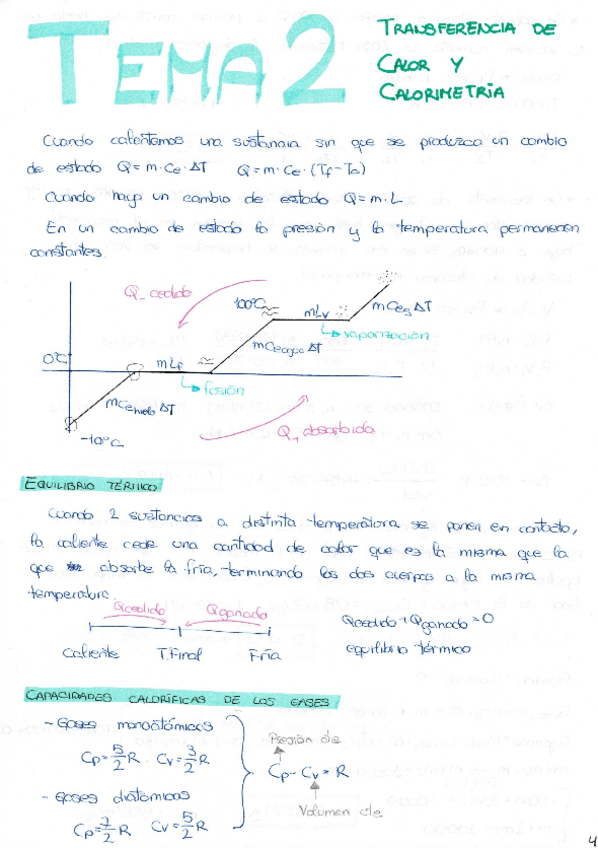 TEMA 2
TRANSFERENCIA DE
CALOR Y
CALORIMETRÍA
Cuando calentamos una sustancia sin que se produzca un cambio
de estado Q=m·Ce·ΔT Q=m·Ce·(Tf-To)
Cuando hay un cambio de estado Q=m·L
En un cambio de estado la presión y la temperatura permanecen
constantes.
Q- cedido
100ºC
mLv
mCeg ΔT
vaporización
mCeagua ΔT
0ºC
mLf
fusión
mCehielo ΔT
-10ºC
Q+ absorbido
EQUILIBRIO TÉRMICO
Cuando 2 sustancias a distinta temperatura se ponen en contacto,
la caliente cede una cantidad de calor que es la misma que la
que absorbe la fría, terminando los dos cuerpos a la misma
temperatura.
Qcedido Qganado
Qcedido+Qganado=0
Caliente T.Final Fría
equilibrio térmico
CAPACIDADES CALORÍFICAS DE LOS GASES
- Gases monoatómicos
Cp=5/2 R Cv=3/2 R
Presión cte
Cp-Cv=R
- Gases diatómicos
Volumen cte
Cp=7/2 R Cv=5/2 R
4